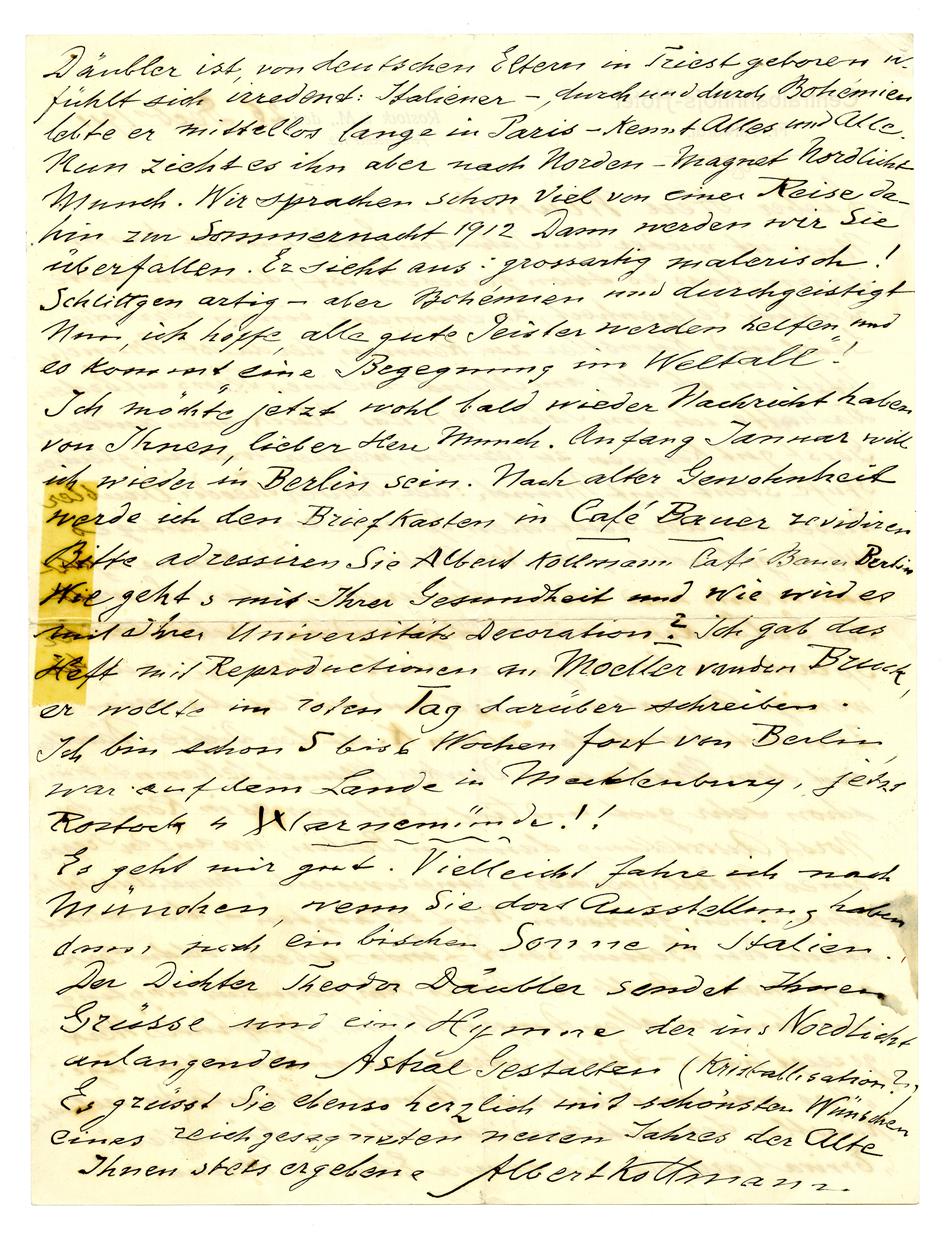 Däubler ist, von deutschen Eltern in Triest geboren u.
fühlt sich irredent: Italiener –, durch und durch Bohémien
lebte er mittellos lange in Paris – Kennt Alles und Alle.
Nun zieht es ihn aber nach Norden – Magnet Nordlicht
Munch. Wir sprachen schon Viel von einer Reise da-
hin zur Sommernacht 1912 Dann werden wir Sie
überfallen. Er sieht aus: grossartig malerisch!
Schlittgen artig – aber Bohémien und durchgeistigt
Nun, ich hoffe, alle gute Geister werden helfen und
es kommt eine „Begegnung im Weltall"!
Ich möchte jetzt wohl bald wieder Nachricht haben
von Ihnen, lieber Herr Munch. Anfang Januar will
ich wieder in Berlin sein. Nach alter Gewohnheit
werde ich den Briefkasten in Café Bauer revidiren
Bitte adressiren Sie Albert Kollmann Café Bauer Berlin
Wie geht s mit Ihrer Gesundheit und Wie wird es
mit Ihrer Universitäts Decoration? Ich gab das
Heft mit Reproductionen an Moeller van den Bruck,
er wollte im roten Tag darüber schreiben.
Ich bin schon 5 bis 6 Wochen fort von Berlin
war auf dem Lande in Mecklenburg, jetzt
Rostock u Warnemünde.!!
Es geht mir gut. Vielleicht fahre ich nach
München, wenn Sie dort Ausstellung haben
dann noch ein bischen Sonne in Italien.
Der Dichter Theodor Däubler sendet Ihnen
Grüsse und eine Hymne der ins Nordlicht
anlangenden Astral Gestalten (Kristallisation?)
Es grüsst Sie ebenso herzlich mit schönsten Wünschen
eines reichgesegneten neuen Jahres der Alte
Ihnen stets ergebene Albert Kollmann.